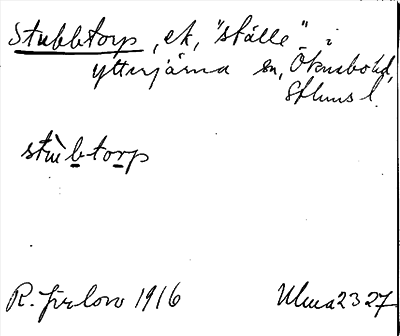 Stubbtorp, ek, "ställe" i
Ytterjärna sn, Öknebo hd,
Sthlms l.
stùbtorp
R. 1916
Ulma 2327